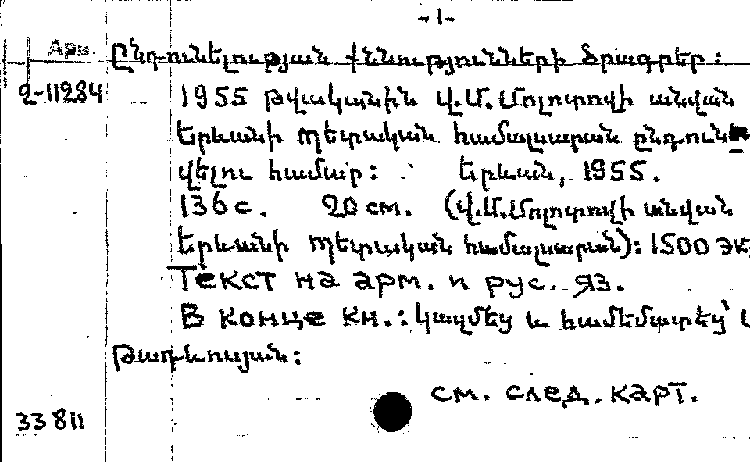 -1-
Арм. Ընդունելության քննությունների ծրագրեր:
2-11284 1955 թվականին Վ.Մ.Մոլոտովի անվան
Երևանի պետական համալսարան ընդուն
վելու համար: Երևան, 1955.
136 с. 20 см. (Վ.Մ.Մոլոտովի անվան
Երևանի պետական համալսարան): 1500 эк.
Текст на арм. и рус. яз.
В конце кн.: կազմեց և համեմատեց՝
Թադևոսյան:
см. след. карт.
33811